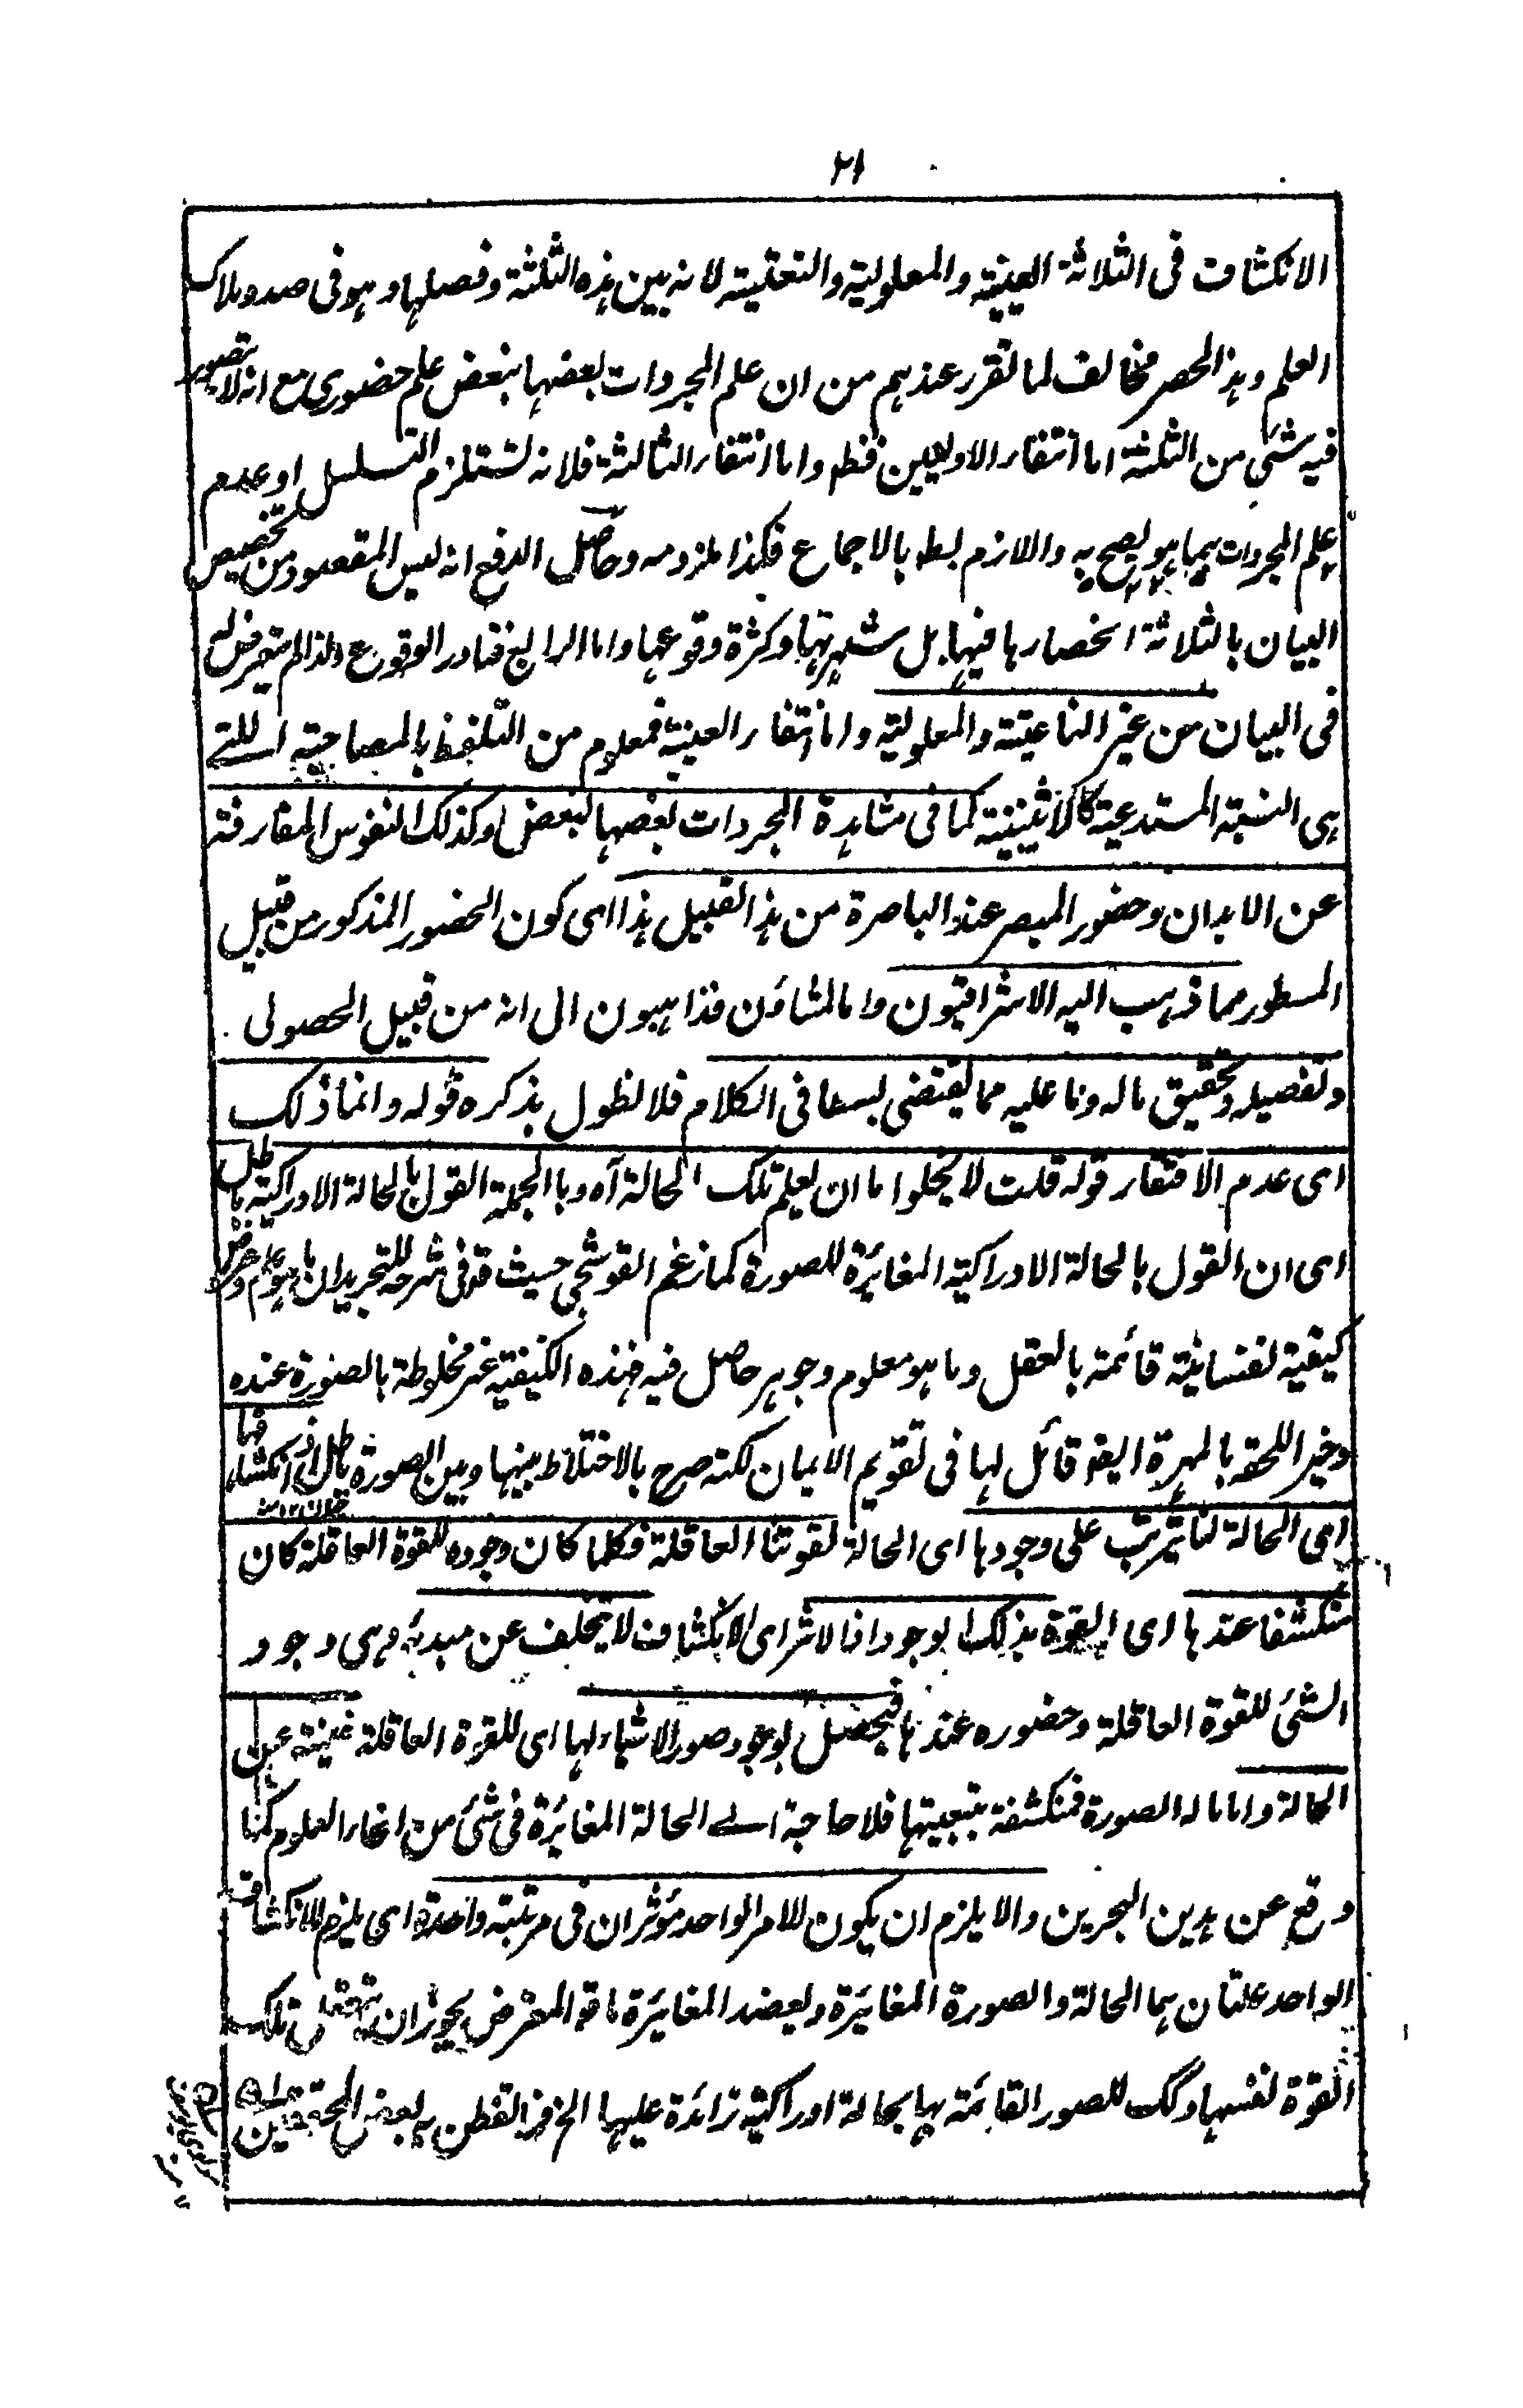 ٢١
الانكشاف فى الثلاثة العينية والمعلولية والنعتية لانه بين هذه الثلثة وفصلها وهو فى صدد ملاك
العلم وهذا الحصر مخالف لما تقرر عندهم من ان علم المجردات بعضها ببعض علم حضورى مع انه لا يتصور
فيه شئ من الثلثة اما انتفاء الاوليين فظ واما انتفاء الثالثة فلانه تستلزم التسلسل او عدم
علم المجردات بما هو يصح به واللازم بط بالاجماع فكذا ملزومه وحاصل الدفع انه ليس المقصود من تخصيص
البيان بالثلاثة انحصارها فيها بل شهرتها وكثرة وقوعها واما الرابع فنادر الوقوع ولذا لم يتعرض له
فى البيان من غير الناعتية والمعلولية واما انتفاء العينية فمعلوم من التلفظ بالمصاحبة اللتے
هى النسبة المستدعية للاثنينية كما فى مشاهدة المجردات بعضها لبعض وكذلك النفوس المفارقة
عن الابدان وحضور المبصر عند الباصرة من هذا القبيل هذا اى كون الحضور المذكور من قبيل
المسطور مما ذهب اليه الاشراقيون واما المشاؤن فذاهبون الى انه من قبيل الحصولى
وتفصيله وتحقيق ما له وما عليه مما يقتضى بسطا فى الكلام فلا نطول بذكره قوله وانما ذلك
اى عدم الافتقار قوله قلت لا يخلوا ما ان يعلم تلك الحالة آه وبالجملة القول بالحالة الادراكية باطل
اى ان القول بالحالة الادراكية المغائرة للصورة كما زعم القوشجى حيث قد فى شرحه للتجريد ان ما هو علم وعرض
كيفية نفسانية قائمة بالعقل وما هو معلوم وجوهر حاصل فيه فهذه الكيفية غير مخلوطة بالصورة عنده
وخير اللحقه بالمهرة ايضا قائل لها فى تقويم الايمان لكنه صرح بالاختلاط بينها وبين الصورة باطل اذ انكشافها
اى الحالة لما يترتب على وجودها اى الحالة لقوتنا العاقلة فكلما كان وجوده للقوة العاقلة كان
منكشفا عندها اى القوة بذلك الوجود اذ الاثر اى الانكشاف لا يتخلف عن مبدئه وهى وجود
الشئ للقوة العاقلة وحضوره عندها فيحصل بوجود صور الاشياء لها اى للقوة العاقلة غنية عن
الحالة واما ما له الصورة فمنكشفة بتبعيتها فلا حاجة الے الحالة المغائرة فى شئ من انحاء العلوم كما
وقع عن هذين البحرين والا يلزم ان يكون للامر الواحد مؤثران فى مرتبة واحدة اى يلزم للانكشاف
الواحد علتان هما الحالة والصورة المغائرة وبعضد المغائرة ما قو المعترض يجوز ان تتعقل تلك
القوة نفسها وتلك للصور القائمة بها بحالة ادراكية زائدة عليها الخ فمن التفطن به بعض المحققين